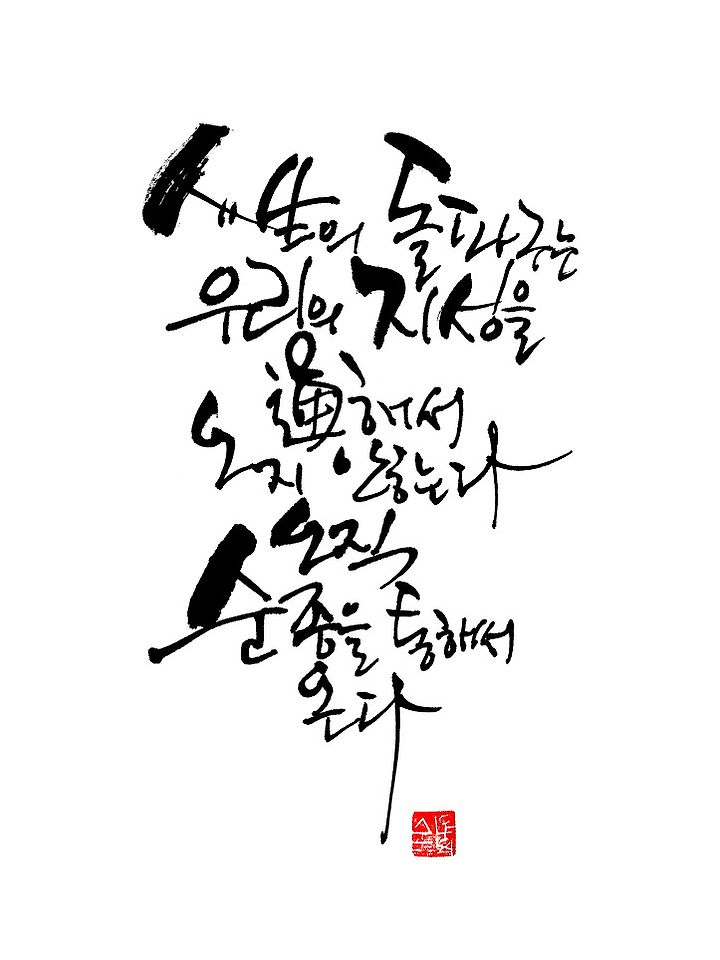 人生의 돌파구는
우리의 지성을
通해서
오지 않는다
오직
순종을 통해서
온다